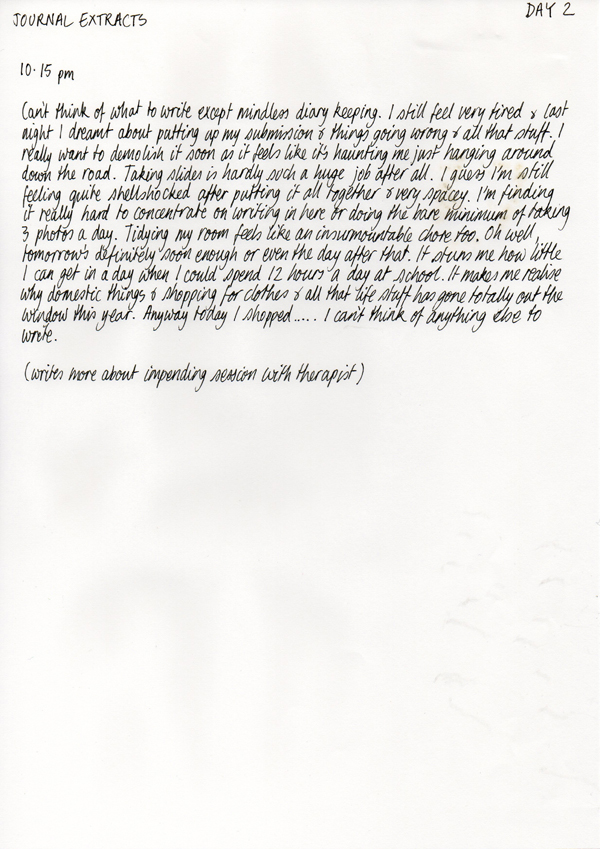 JOURNAL EXTRACTS
DAY 2
10.15 pm
Can't think of what to write except mindless diary keeping. I still feel very tired & last
night I dreamt about putting up my submission & things going wrong & all that stuff. I
really want to demolish it soon as it feels like it's haunting me just hanging around
down the road. Taking slides is hardly such a huge job after all. I guess I'm still
feeling quite shellshocked after putting it all together & very spacey. I'm finding
it really hard to concentrate on writing in here or doing the bare minimum of taking
3 photos a day. Tidying my room feels like an insurmountable chore too. Oh well,
tomorrow's definitely soon enough or even the day after that. It stuns me how little
I can get in a day when I could spend 12 hours a day at school. It makes me realise
why domestic things & shopping for clothes & all that life stuff has gone totally out the
window this year. Anyway today I shopped..... I can't think of anything else to
write.
(writes more about impending session with therapist)